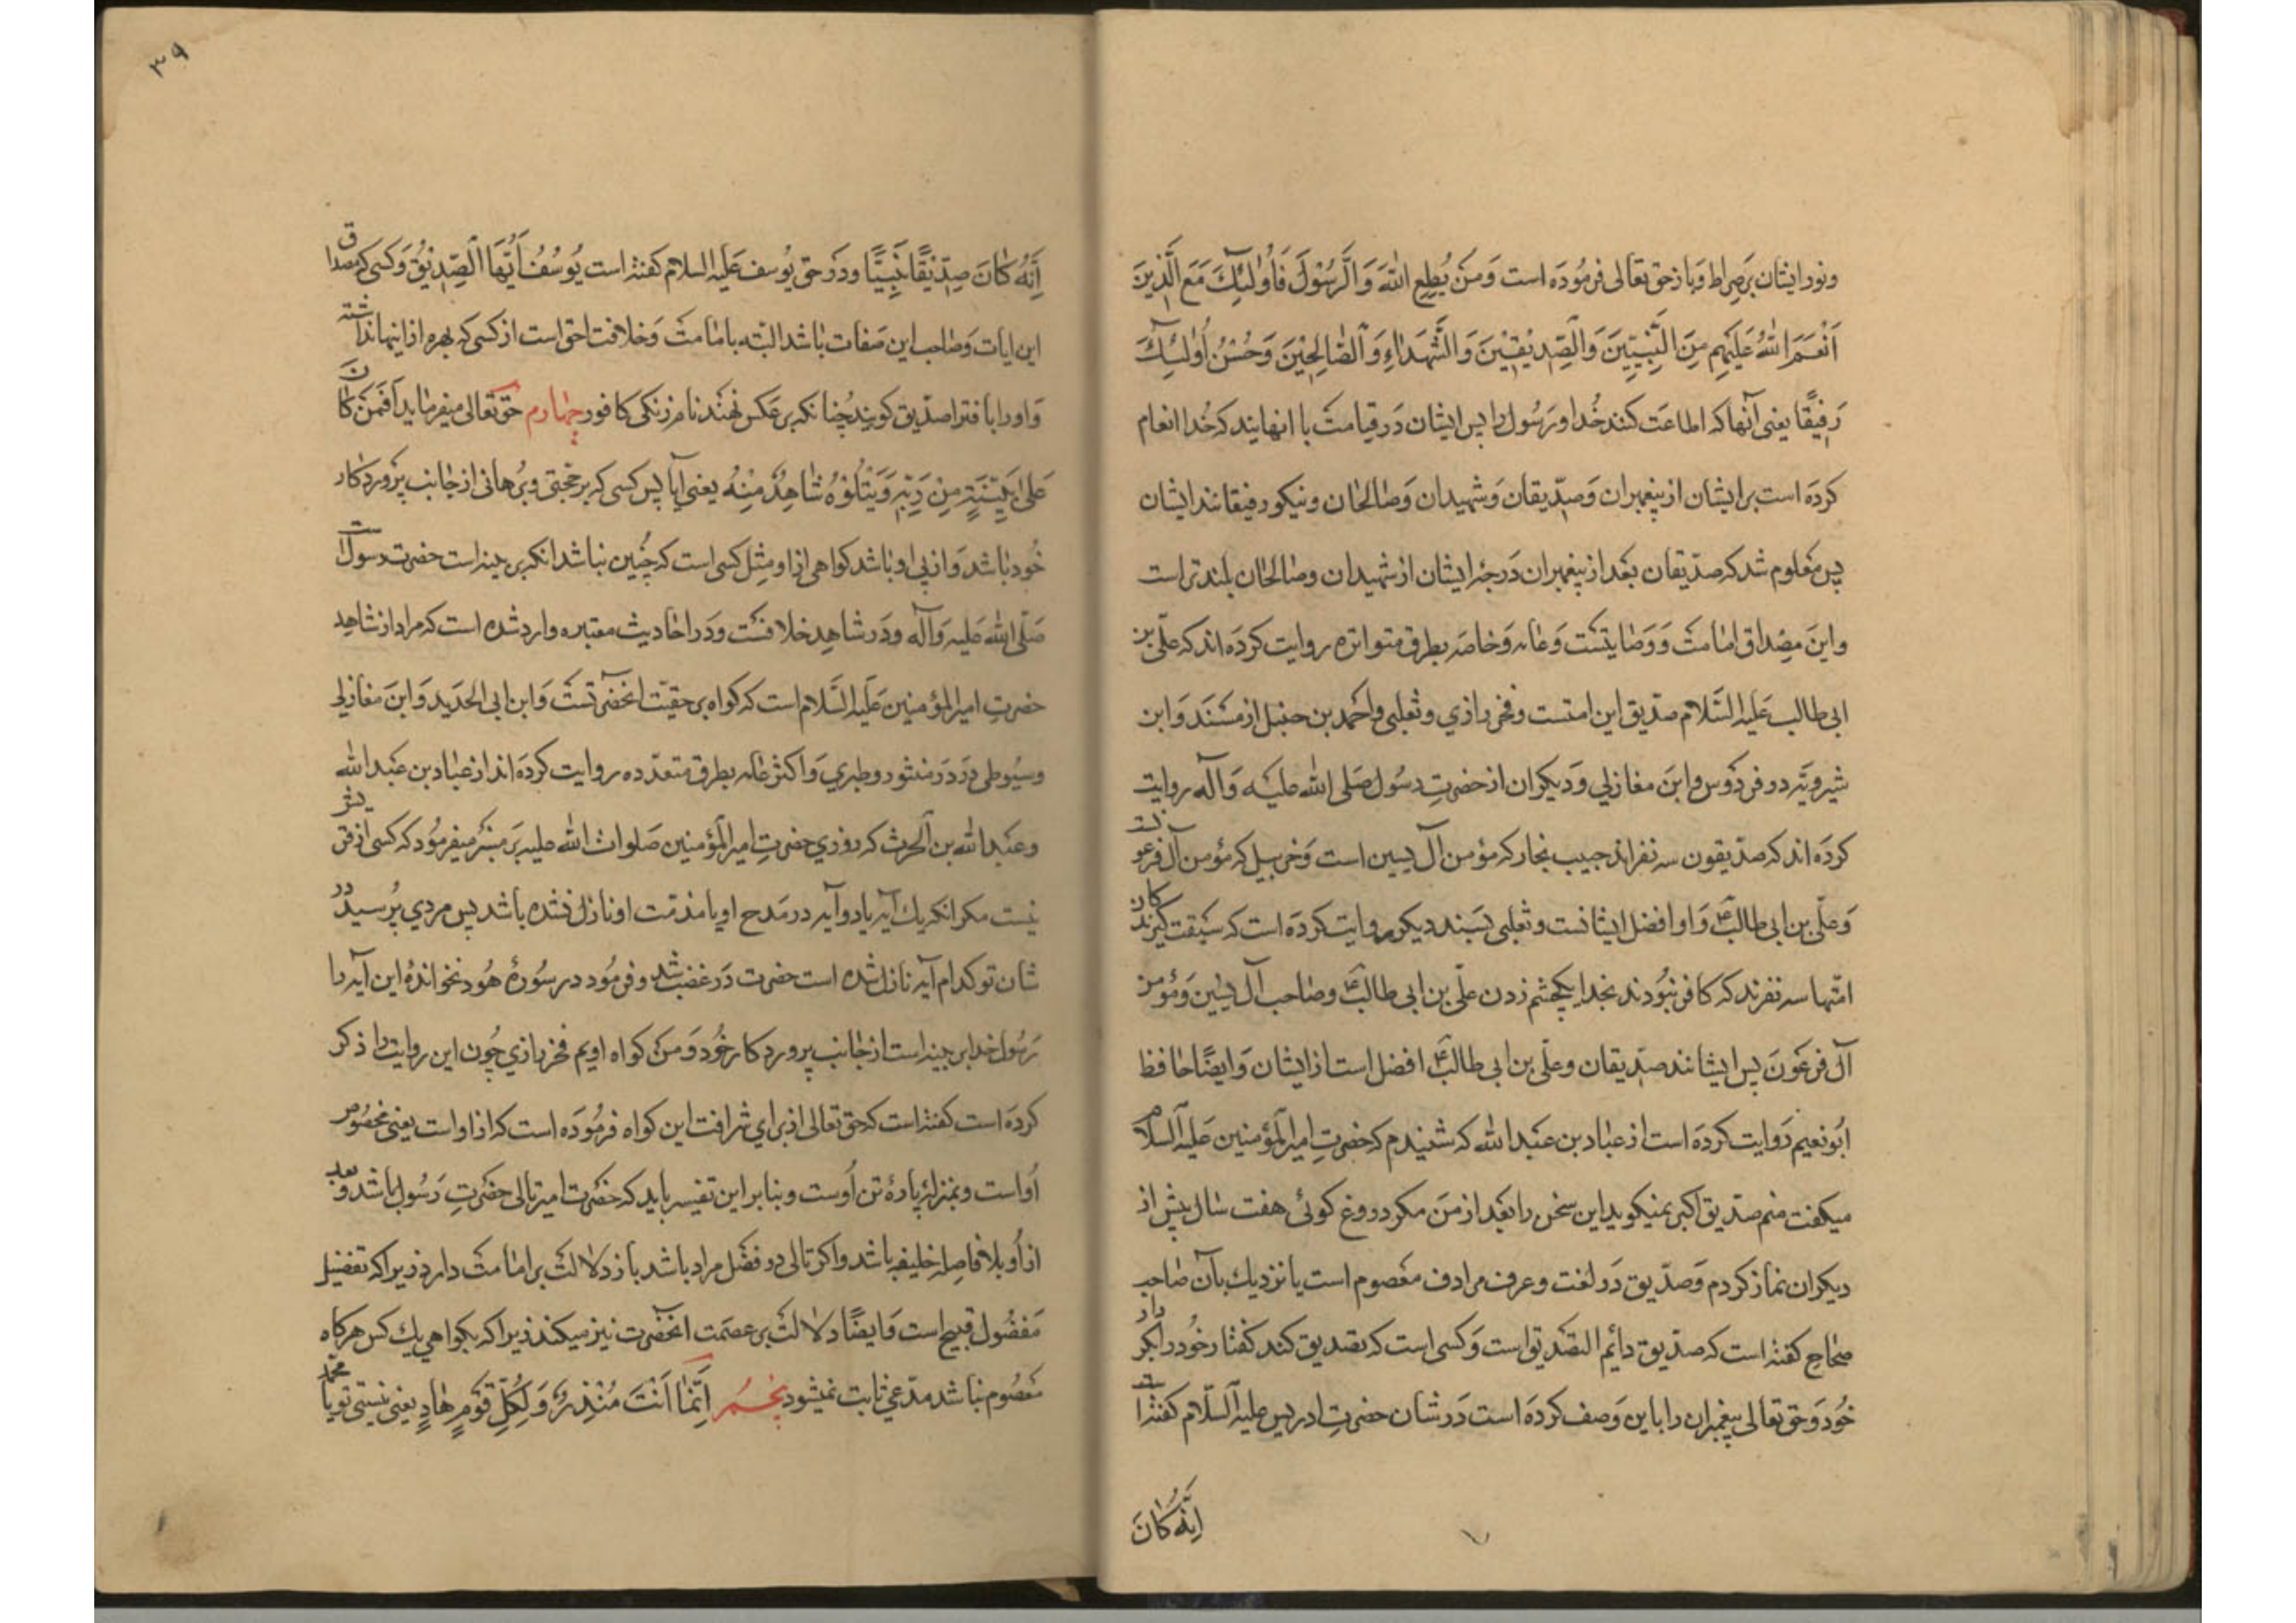 ونور ایشان بر صراط و باز حق تعالی فرموده است وَمَنْ یُطِعِ اللّٰهَ وَالرَّسُوْلَ فَأُولٰئِكَ مَعَ الَّذِینَ
اَنْعَمَ اللّٰهُ عَلَیْهِم مِنَ النَّبِیّینَ وَالصِّدِیْقِیْنَ وَالشُّهَدٰاءِ وَالصّٰالِحِیْنَ وَحَسُنَ اُولٰئِكَ
رَفِیْقًا یعنی آنها که اطاعت کنند خدا و رسول را پس ایشان در قیامت با انهایند که خدا انعام
کرده است بر ایشان از پیغمبران و صدّیقان و شهیدان و صالحان و نیکو رفیقانند ایشان
پس معلوم شد که صدّیقان بعد از پیغمبران درجۀ ایشان از شهیدان وصالحان بلندتر است
واین مصداق امامت و وصایتست و عامه و خاصه بطرق متواتره روایت کرده اند که علّی بن
ابی طالب علیه السّلام صدّیق این امتست و فخر رازی و ثعلبی و احمد بن حنبل از مسند و ابن
شیرویّه در فردوس و ابن مغازلی و دیکران از حضرتِ رسول صلی الله علیه و آله روایت
کرده اند که صدّیقون سه نفراند حبیب نجار که مؤمن آل یسین است و خربیل که مؤمن آل فرعونست
و علّی بن ابی طالبؑ و او افضل ایشانست و ثعلبی بسند دیکر روایت کرده است که سبقت کیرندکان
امّتها سه نفرند که کافر نبودند بخدا یکچشم زدن علّی بن ابی طالبؑ وصاحب آل یسین و مؤمن
آل فرعون پس ایشانند صدّیقان و علّی بن ابی طالبؑ افضل است از ایشان و ایضًا حافظ
ابو نعیم روایت کرده است از عباد بن عبد الله که شنیدم که حضرتِ امیر المؤمنین علیه السلام
میکفت منم صدّیق اکبر نمیکوید این سخن را بعد از من مکر دروغ کوئی هفت سال پیش از
دیکران نماز کردم و صدّیق در لغت و عرف مرادف معصوم است یا نزدیك بآن صاحب
صحاح کفته است که صدّیق دایم التصدیق است و کسی است که تصدیق کند کفتار خود را بکردار
خود و حق تعالی پیغمبران را باین وصف کرده است در شان حضرتِ ادریس علیه السّلام کفته است
اِنَّهُ کَانَ
۳۹
اِنَّهُ کَانَ صِدِّیْقًا نَبِیًّا و در حق یوسف علیه السلام کفته است یُوسُفُ اَیُّهَا الصِّدِّیْقُ و کسی که مصداق
این ایات و صاحب این صفات باشد البته بامامت و خلافت احق است از کسی که بهره از اینها نداشته
و او را بافترا صدّیق کویند چنانکه بر عکس نهند نام زنکی کافور چهارم حق تعالی میفرماید اَفَمَنْ کَانَ
عَلیٰ بَیِّنَةٍ مِنْ رَبِّهٖ وَیَتْلُوْهُ شٰاهِدٌ مِنْهُ یعنی آیا پس کسی که بر حجّتی و برهانی از جانب پروردکار
خود باشد و از پی او باشد کواهی از او مثل کسی است که چنین نباشد انکه بر بینه است حضرت رسول است
صلّی الله علیه و آله و در شاهد خلافست و در احادیث معتبره وارد شده است که مراد از شاهد
حضرتِ امیر المؤمنین علیه السّلام است که کواه بر حقیّت انحضرتست و ابن ابی الحدید و ابن مغازلی
وسیوطی در در منثور و طبری و اکثر عامه بطرق متعدّده روایت کرده اند از عباد بن عبد الله
و عبد الله بن الحرث که روزی حضرتِ امیر المؤمنین صلوات الله علیه بر منبر میفرمود که کسی از قریش
نیست مکر انکه یك آیه یا دو آیه در مدح او یا مذمّت او نازل نشده باشد پس مردی پرسید در
شان تو کدام آیه نازل شده است حضرت در غضب شد و فرمود در سورۀ هود نخواندۀ این آیه را
رسول خدا بر بینه است از جانب پروردکار خود و من کواه اویم فخر رازی چون این روایت را ذکر
کرده است کفته است که حق تعالی از برای شرافت این کواه فرموده است که از او است یعنی مخصوص
او است و بمنزلۀ پارۀ تن اوست و بنابر این تفسیر باید که حضرت امیر تالی حضرتِ رسول باشد و بعد
از او بلا فاصله خلیفه باشد و اکر تالی در فضل مراد باشد باز دلالت بر امامت دارد زیرا که تفضیل
مفضول قبیح است و ایضًا دلالت بر عصمت انحضرت نیز میکند زیرا که بکواهی یك کس هرکاه
معصوم نباشد مدّعی ثابت نمیشود پنجم اِنَّمٰا اَنْتَ مُنْذِرٌ وَلِکُلِّ قَوْمٍ هٰادٍ یعنی نیستی تو یا محمّد